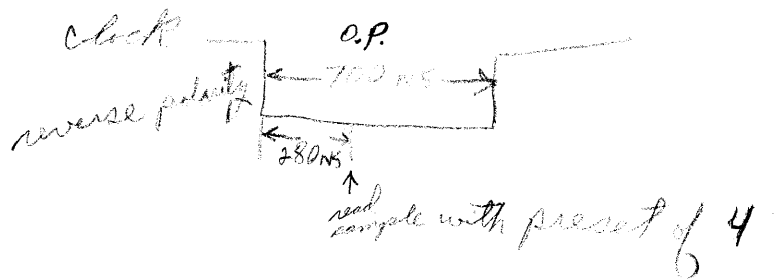 clock O.P.
700 ns
reverse polarity
280 ns
read
sample with preset of 4